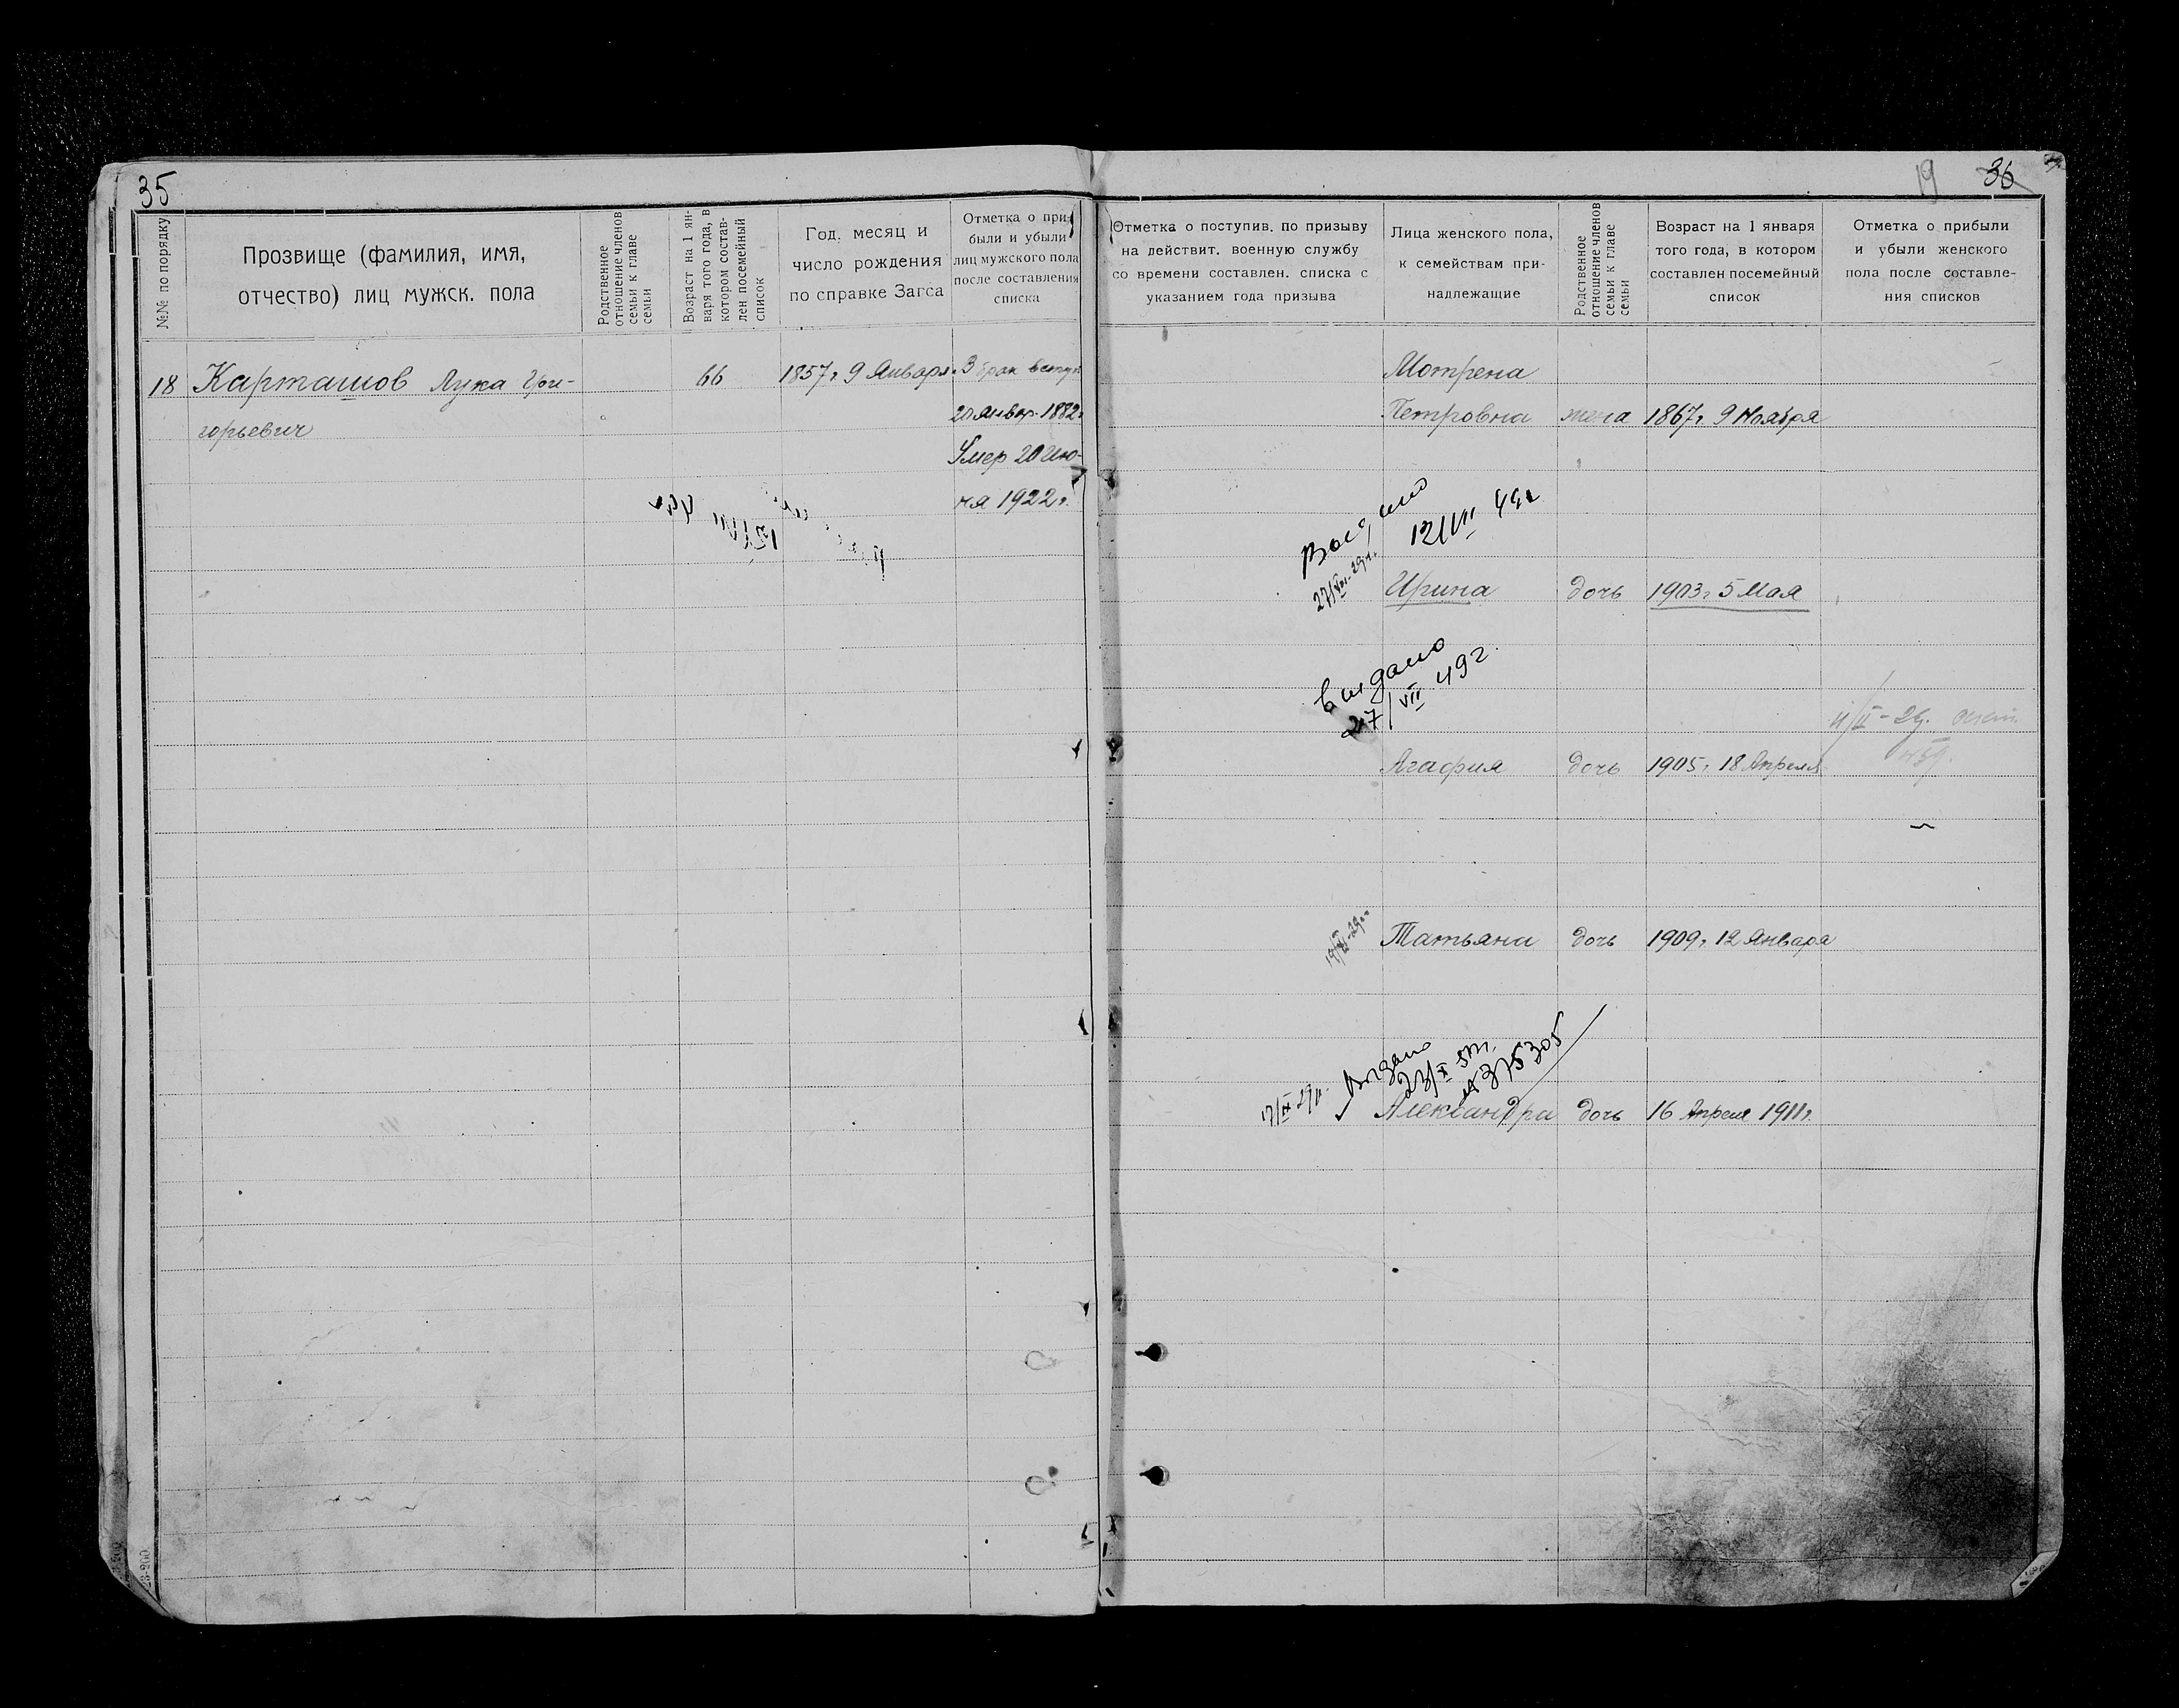 35
№№ по порядку
Прозвище (фамилия, имя,
отчество) лиц мужск. пола
Родственное
отношение членов
семьи к главе
семьи
Возраст на 1 ян-
варя того года, в
котором состав-
лен посемейный
список
Год, месяц и
число рождения
по справке Загса
Отметка о при-
были и убыли
лиц мужского пола
после составления
списка
18 Карташов Лука Гри- 66 1857 г 9 Января. В брак вступ
горьевич
20 Январ. 1882 г
Умер 20 Ию-
ня 1922 г.
19 36
Отметка о поступив. по призыву
на действит. военную службу
со времени составлен. списка с
указанием года призыва
Лица женского пола,
к семействам при-
надлежащие
Родственное
отношение членов
семьи к главе
семьи
Возраст на 1 января
того года, в котором
составлен посемейный
список
Отметка о прибыли
и убыли женского
пола после составле-
ния списков
Мотрена
Петровна жена 1867 г. 9 Ноября
12/VII 49 г
Ирина дочь 1903 г 5 Мая
выдано
27/VII 49 г.
4/II-29.
Агафия дочь 1905 г 18 Апреля
Татьяна дочь 1909 г 12 Января
Выдано
23/X
№ 375305
Александра дочь 16 Апреля 1911 г.